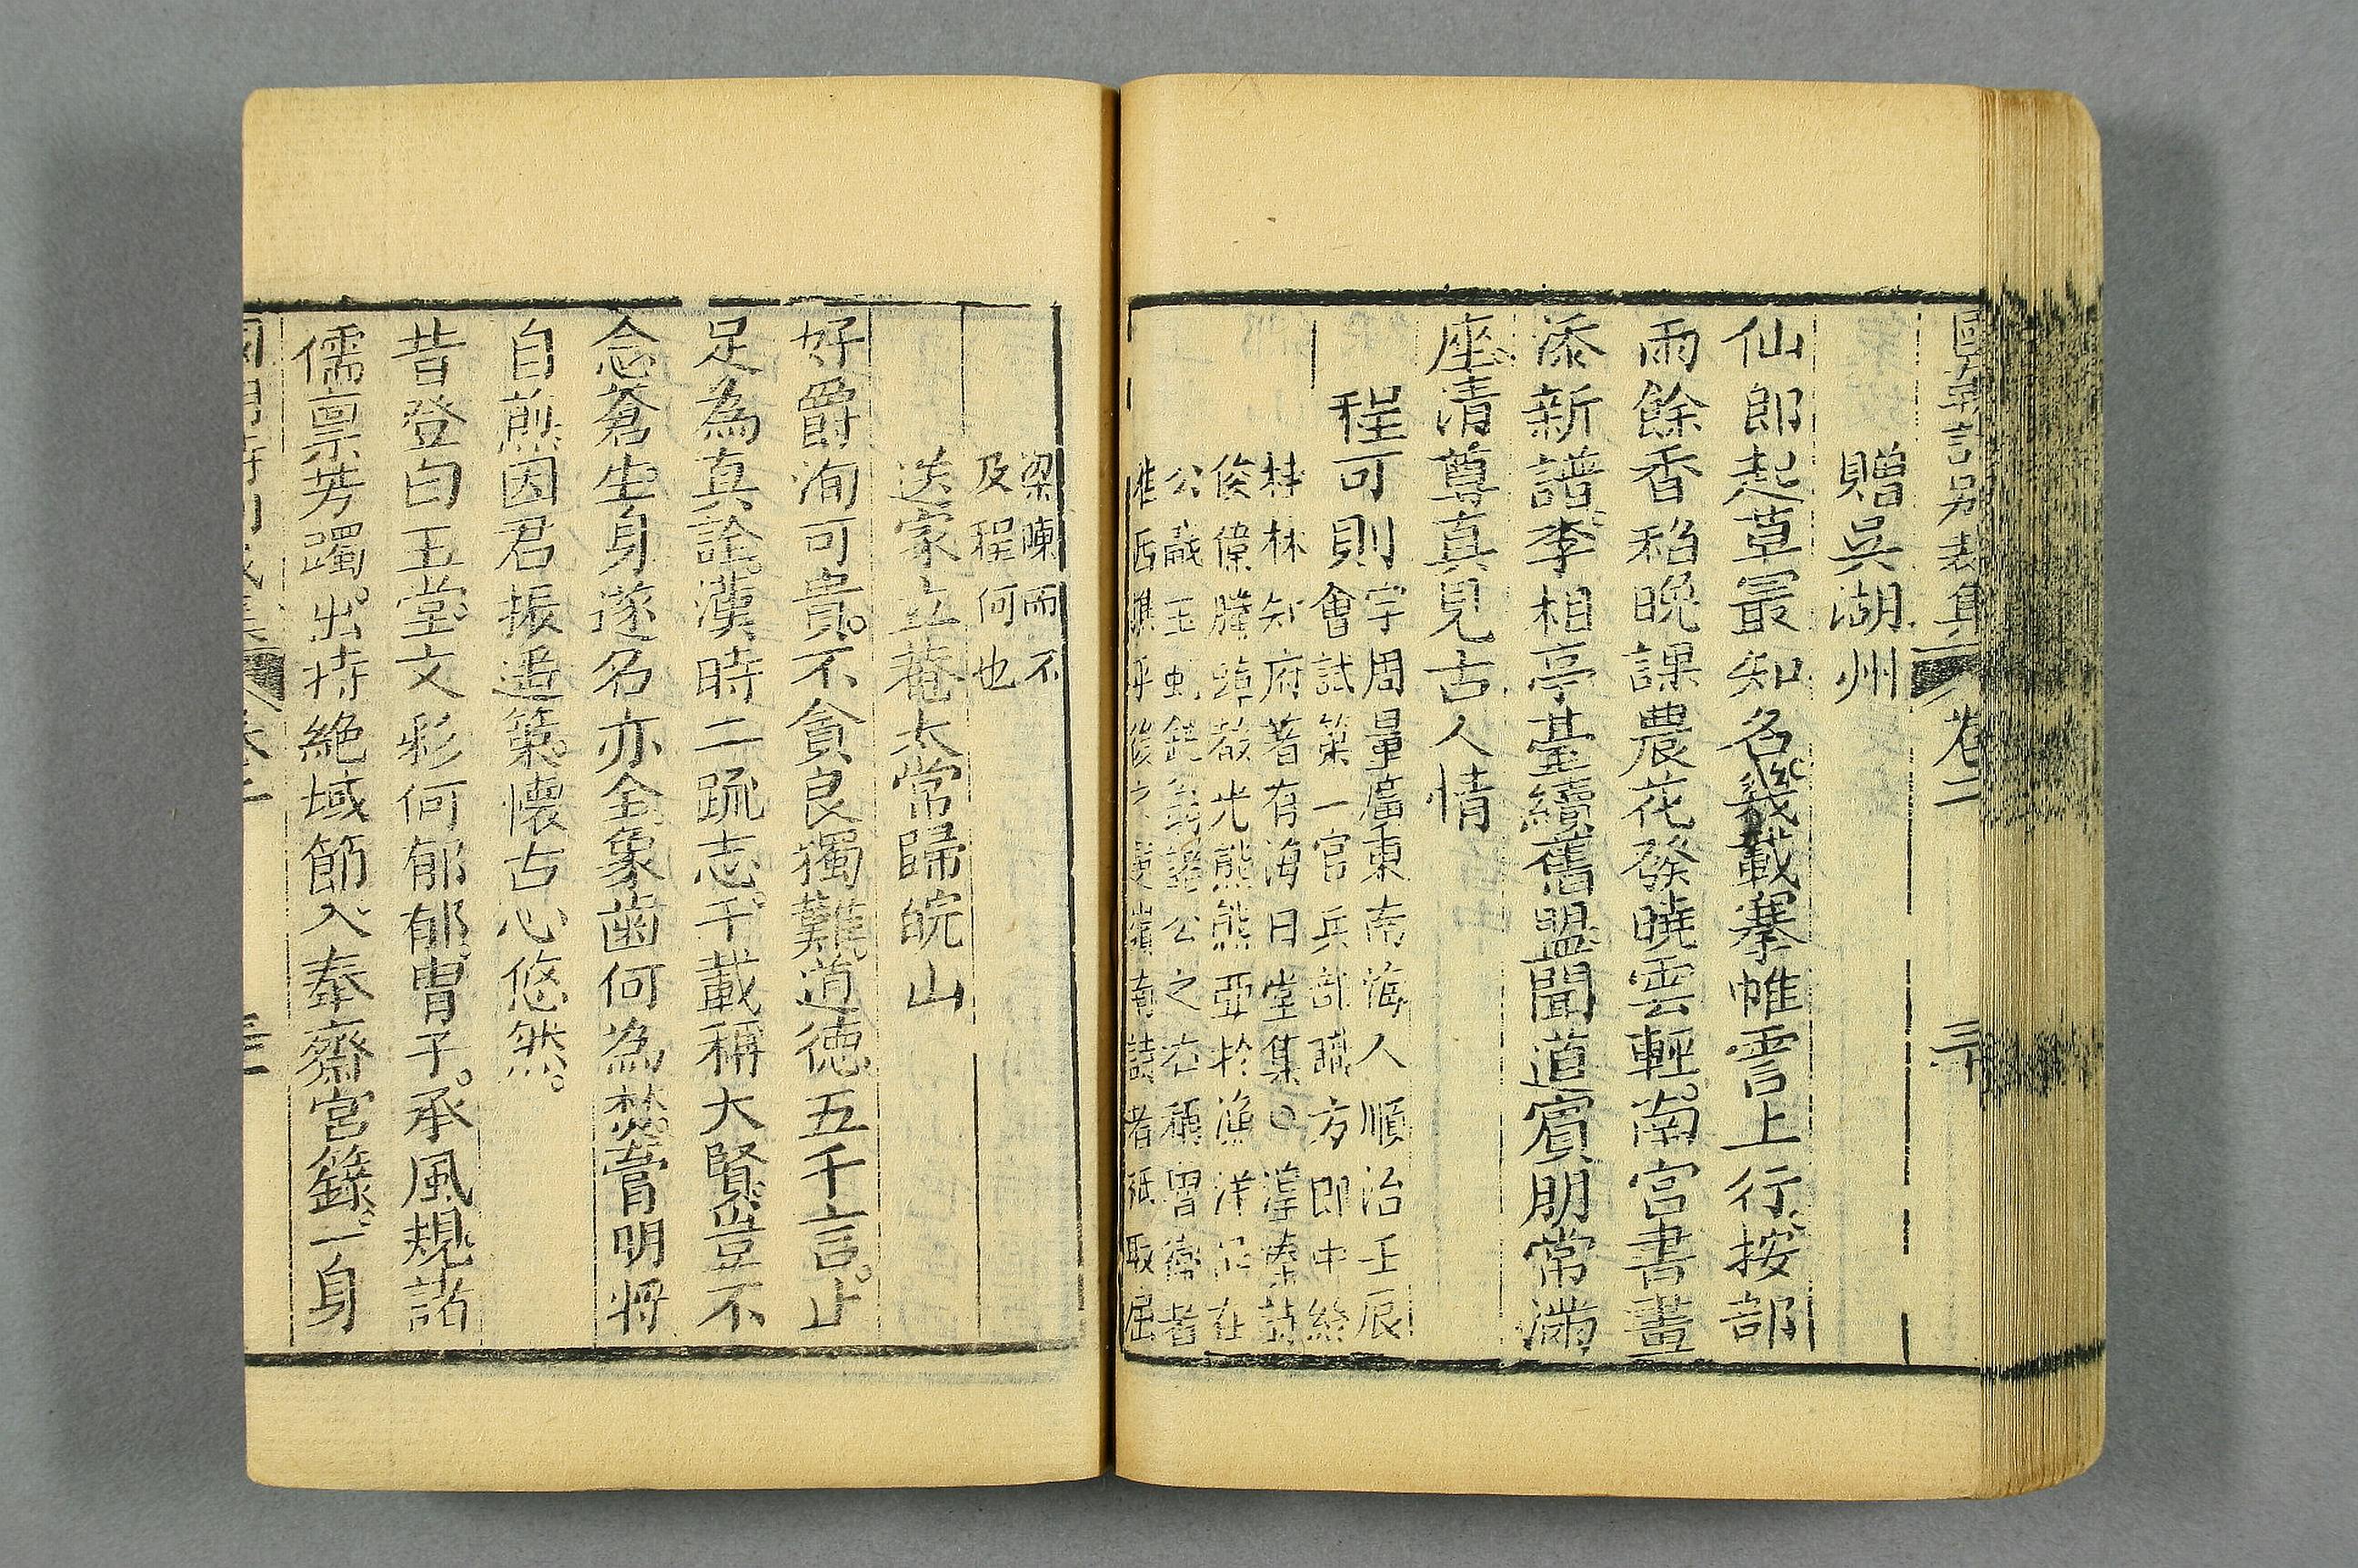 卷二
三十
贈吳湖州
仙郎起草最知名幾載搴帷霅上行按部
雨餘香稻晚課農花發曉雲輕南宮書畫
添新譜李相亭臺續舊盟聞道賓朋常滿
座清尊真見古人情
程可則字周量廣東南海人順治壬辰
會試第一官兵部職方郎中終
桂林知府著有海日堂集○
俊偉騰踔敲光熊熊亞於漁洋
公嚴玉虬鈍翁諸公之右
梁陳而不
及程何也
送家立菴太常歸皖山
好爵洵可貴不貪良獨難道德五千言止
足為真詮漢時二疏志千載稱大賢豈不
念蒼生身遂名亦全象齒何為焚膏明將
自煎因君振逸策懷古心悠然
昔登白玉堂文彩何郁郁冑子承風規諸
儒禀芳躅出持絕域節入奉齋宮籙一身